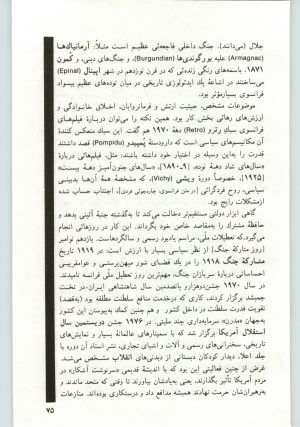 جلال (می‌دانند). جنگ داخلی فاجعه‌ئی عظیم است مثلاً: آرمانیاک‌ها
(Armagnac) علیه بورگوندی‌ها (Burgundian) و جنگ‌های دینی، و کمون
۱۸۷۱. باسمه‌های رنگی زنده‌ئی که در قرن نوزدهم در شهر اپینال (Epinal)
می‌ساختند در اشاعهٔ یک ایدئولوژی تاریخی در میان توده‌های عظیم بیسواد
فرانسوی بسیار مؤثر بود.
موضوعات مشخص، حیثیت ارتش و فرمانروایان، اخلاق خانوادگی و
ارزش‌های رهائی بخش کار بود. همین نکته را می‌توان دربارهٔ فیلم‌های
فرانسوی سبک رترو (Retro) دههٔ ۱۹۷۰ هم گفت. این سبک منعکس کنندهٔ
آن مکانیسم‌های سیاسی است که دارودستهٔ پُمپیدو (Pompidu) مقاصد
قدرت را به‌این وسیله در اختیار خود داشته باشند: مثل، فیلم‌هائی دربارهٔ
«سال‌های شاد دههٔ نود» [۹-۱۸۹۰]، «سال‌های جنون‌آمیز دههٔ بیست»
[۱۹۲۵]، خصوصاً دورهٔ ویشی (Vichy) که مشخصهٔ همهٔ آن‌ها بدبینی
سیاسی، روح فردگرائی [در متن فرانسوی: چاره‌جوئی فردی]، اجتناب حساب شده
از مشکلات رایج بود.
گاهی ابزار دولتی مستقیم‌تر دخالت می‌کند تا به‌گذشته جنبهٔ آئینی بدهد و
حافظهٔ مشترک را به‌مقاصد خاص خود بگرداند. این کار در روزهائی انجام
می‌گیرد، که تعطیلات ملّی، مراسم یادبود رسمی و سالگردهاست. یازدهم نوامبر
[روز متارکهٔ جنگ] از نظر سیاسی بسیار با ارزش است: در ۱۹۱۹ تاریخ
متارکهٔ جنگ ۱۹۱۸ را در یک فضای شور میهن‌پرستی و عوامفریبی
احساساتی دربارهٔ سربازان جنگ، مهم‌ترین روز تعطیل ملّی فرانسه نامیدند.
در سال ۱۹۷۰ جشن دوهزار و پانصدمین سال شاهنشاهی ایران، در تخت
جمشید برگزار کردند، کاری که درخدمت منافع سلطنت مطلقه بود (به‌قصد)
تقویت قدرت سلطنت در داخل کشور و هم چنین کمک به‌پیوستن این کشور
به‌جهان «مدرن» سرمایه‌داری چند ملیتی. در ۱۹۷۶ جشن دویستمین سال
استقلال آمریکا برگزار شد که با سمینارهای عالمانهٔ بسیار و نمایش‌های
تاریخی، سخنرانی‌های رسمی و آلات و اشیای تجاری، نشر اسناد آن دوره با
جلد اعلا، دیدار کودکان دبستانی از دیدنی‌های انقلاب مشخص می‌شد.
غرض از چنین فعالیتی این بود که با اندیشهٔ قدیمی «سرنوشت آشکار» در
مردم آمریکا تأثیر بگذارند، یعنی به‌یادشان بیاورند تا وقتی که متحد ماندند و
به‌رهبران‌شان حرمت نهادند همیشه مدافع داد و دربستکاری بودند. منازعات
۷۵